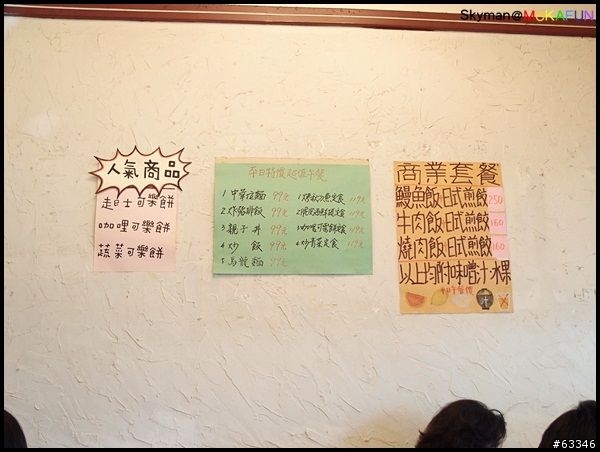 Skyman@MOKAFUN
人氣商品
起士可樂餅
咖哩可樂餅
蔬菜可樂餅
平日特價超值午餐
1 中華拉麵 99元
2 炸豬排飯 99元
3 親子丼 99元
4 炒飯 99元
5 烏龍麵 99元
定食 119元
定食 119元
3 咖哩可樂餅定食 119元
4 炒青菜定食 119元
商業套餐
鰻魚飯,日式煎餃 250
牛肉飯,日式煎餃 160
燒肉飯,日式煎餃 160
以上均附味噌汁.水果
#63346